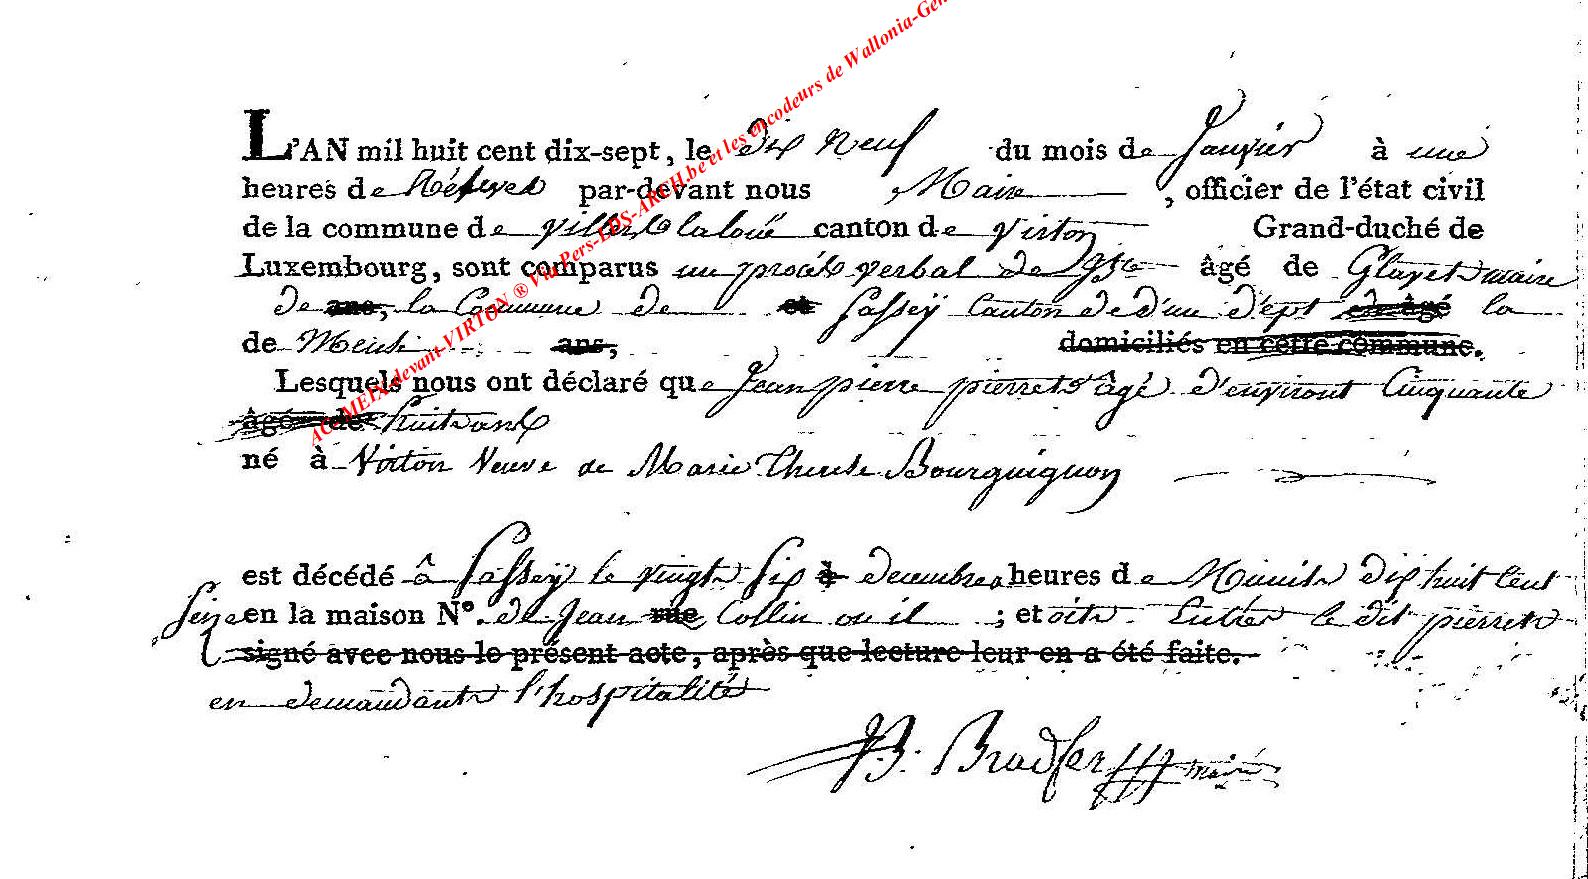 AC-MEIX-devant-VIRTON ® Via Pers-EDS-ARCH.be et les encodeurs de Wallonia-Gen
L'AN mil huit cent dix-sept, le dix neuf du mois de Janvier à une
heures de Rélevet par-devant nous Maire, officier de l'état civil
de la commune de villers la loüe canton de Virton Grand-duché de
Luxembourg, sont comparus un procét verbal de âgé de maire
de ans, la Commune de et Sassey Canton de d'un d'épt de âgé la
de Meuse ans, domiciliés en cette commune.
Lesquels nous ont déclaré que Jean pierre pierret âgé d'environt Cinquante
âgé de huit ans
né à Virton Veuve de Marie Therese Bourguignon
est décédé â Sassey le vingt Six à decembre a heures de Minuit dix huit Cent
Seize en la maison N°. de Jean rue Collin ou il ; et oits Entrér le dit pierret
signé avec nous le présent acte, après que lecture leur en a été faite.
en demandant l'hospitalité
B. Bradfer maire